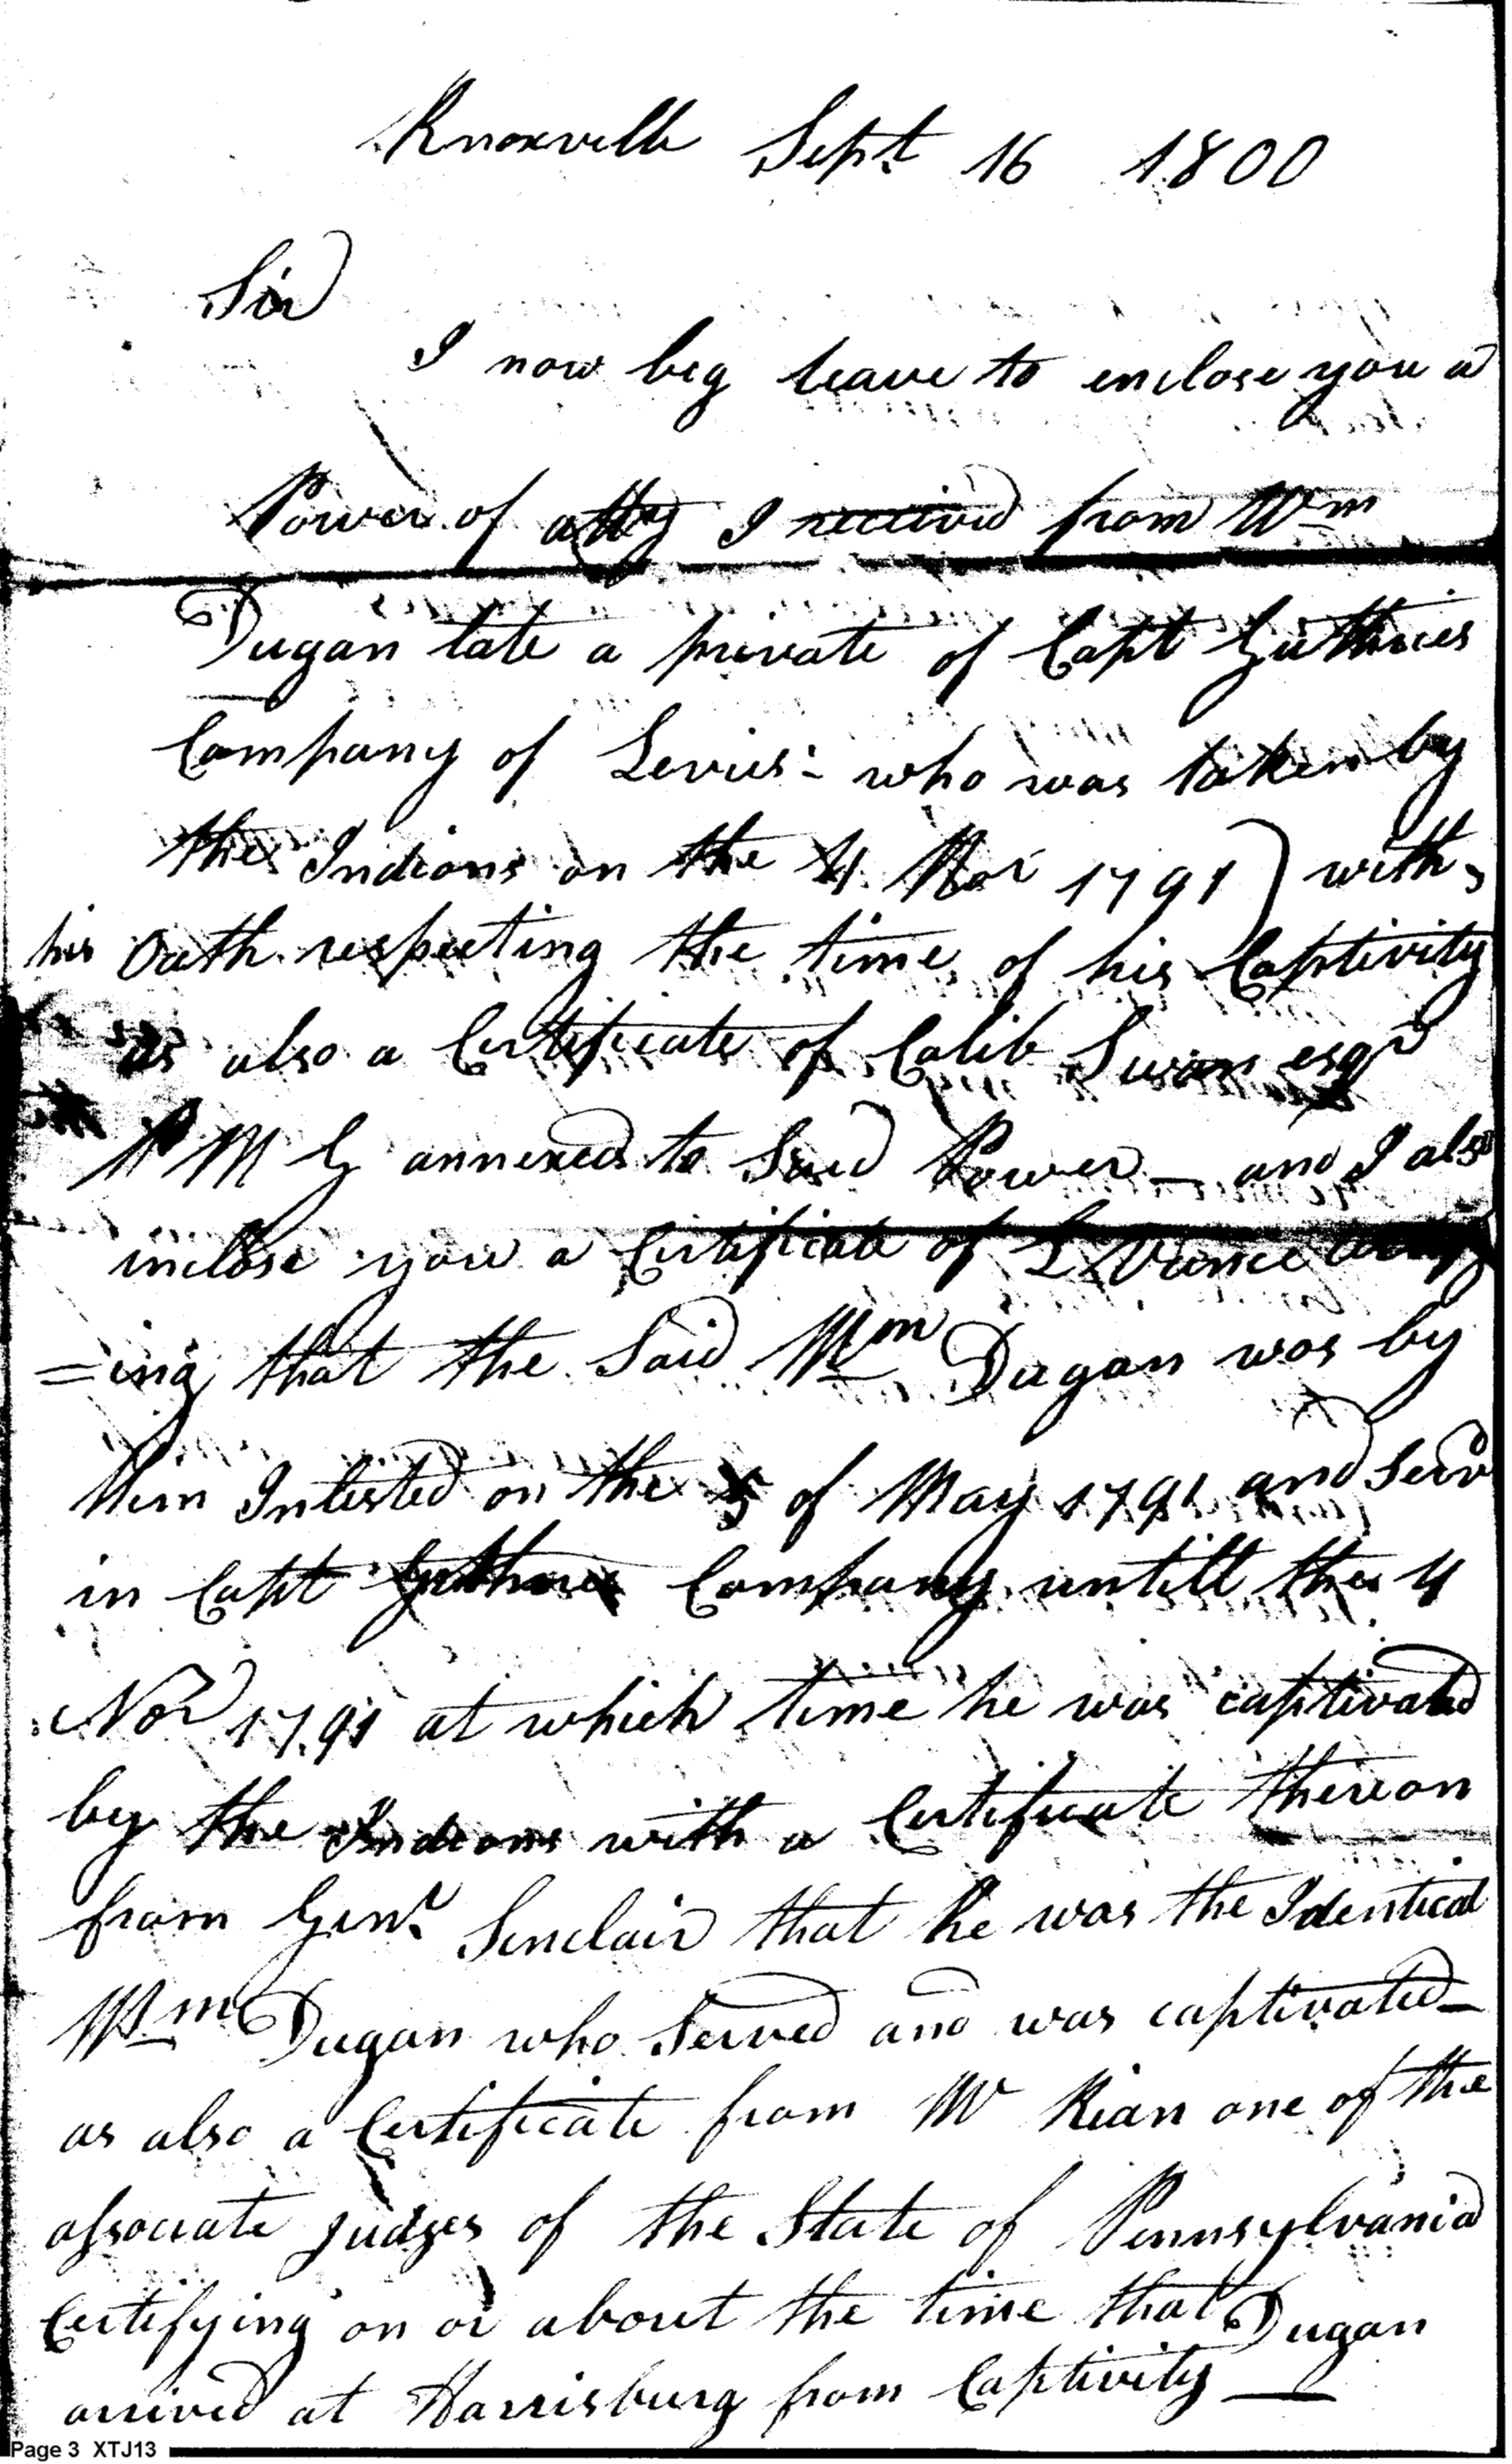 Knoxville Sept 16 1800
Sir
I now beg leave to enclose you a
Power of atty I received from Wm
Dugan late a private of Capt Guthries
Company of Levies - who was taken by
the Indians on the 4 Nov 1791) with
his Oath respecting the time of his Captivity
as also a Certificate of Calib Swan esqr
P M G annexed to Said Power — and I also
inclose you a Certificate of L Vance
=ing that the Said Wm Dugan was by
him Inlisted on the 5 of May 1791 and Servd
in Capt Guthries Company untill the 4
Nov 1791 at which time he was captivated
by the Indians with a Certificate thereon
from Genl Sinclair that he was the Identical
Wm Dugan who Served and was captivated —
as also a Certificate from Mr Kean one of the
associate judges of the State of Pennsylvania
Certifying on or about the time that Dugan
arrived at Harrisburg from Captivity —
Page 3 XTJ13